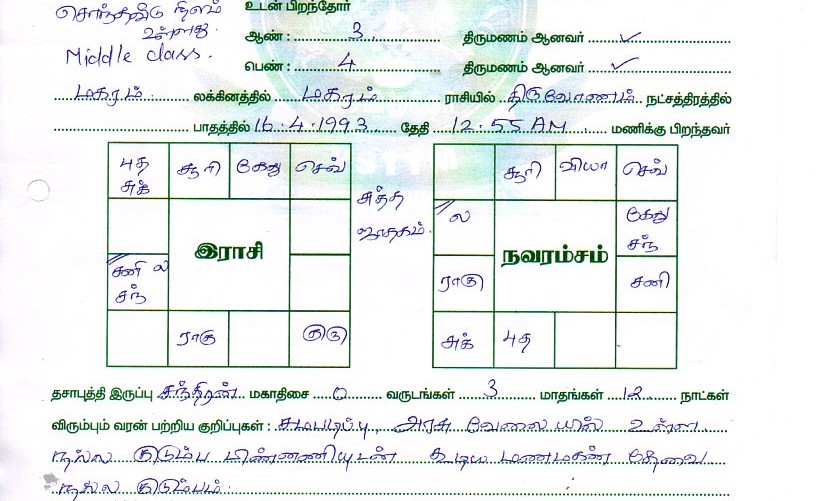 சொந்தவீடு நிலம் உள்ளது.
Middle class.
உடன் பிறந்தோர்
ஆண் : 3 திருமணம் ஆனவர் ✓
பெண் : 4 திருமணம் ஆனவர் ✓
மகரம் லக்கினத்தில் மகரம் ராசியில் திருவோணம் நட்சத்திரத்தில்
பாதத்தில் 16.4.1993 தேதி 12.55 AM மணிக்கு பிறந்தவர்
புத சுக் சூரி கேது செவ்
சனி ல சந்
இராசி
ராகு குரு
சுத்த ஜாதகம்.
சூரி வியா செவ்
ல கேது சந்
நவரம்சம்
ராகு சனி
சுக் புத
தசாபுத்தி இருப்பு சந்திரன் மகாதிசை 0 வருடங்கள் 3 மாதங்கள் 12 நாட்கள்
விரும்பும் வரன் பற்றிய குறிப்புகள் : சமபடிப்பு, அரசு வேலையில் உள்ள
நல்ல குடும்ப பிண்ணணியுடன் கூடிய மணமகன் தேவை
நல்ல குடும்பம்.